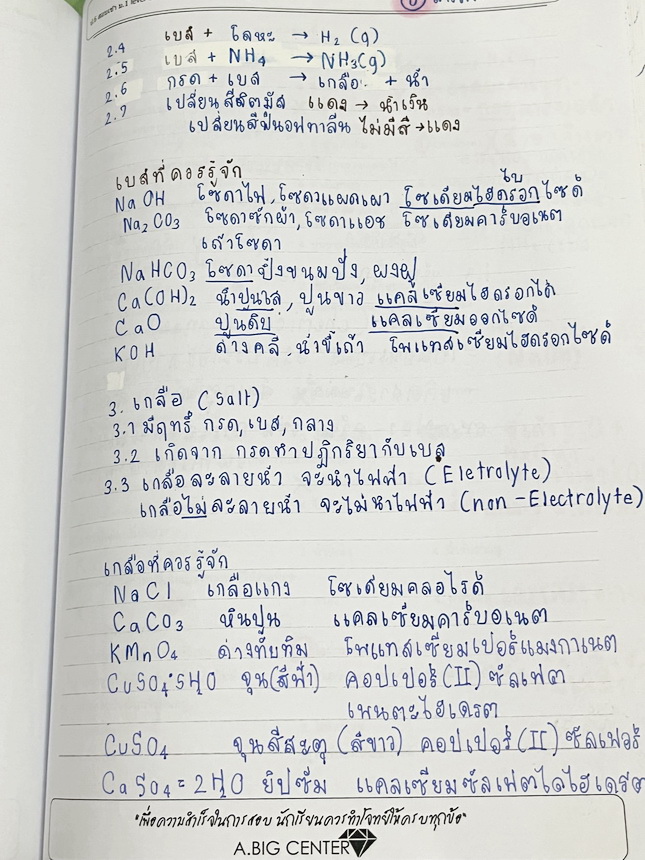 2.4 เบส + โลหะ → H₂ (g)
2.5 เบส + NH₄ → NH₃(g)
2.6 กรด + เบส → เกลือ + น้ำ
2.7 เปลี่ยนสีลิตมัส แดง → น้ำเงิน
เปลี่ยนสีฟีนอฟทาลีน ไม่มีสี → แดง
เบสที่ควรรู้จัก
NaOH โซดาไฟ, โซดาแผดเผา โซเดียมไฮดรอกไซด์
Na₂CO₃ โซดาซักผ้า, โซดาแอช โซเดียมคาร์บอเนต
เถ้าโซดา
NaHCO₃ โซดาปิ้งขนมปัง, ผงฟู
Ca(OH)₂ น้ำปูนใส, ปูนขาว แคลเซียมไฮดรอกไ
CaO ปูนดิบ แคลเซียมออกไซด์
KOH ด่างคลี, น้ำขี้เถ้า โพแทสเซียมไฮดรอกไซด์
3. เกลือ (Salt)
3.1 มีฤทธิ์ กรด, เบส, กลาง
3.2 เกิดจาก กรดทำปฏิกริยากับเบส
3.3 เกลือละลายน้ำ จะนำไฟฟ้า (Eletrolyte)
เกลือไม่ละลายน้ำ จะไม่นำไฟฟ้า (non-Electrolyte)
เกลือที่ควรรู้จัก
NaCl เกลือแกง โซเดียมคลอไรด์
CaCO₃ หินปูน แคลเซียมคาร์บอเนต
KMnO₄ ด่างทับทิม โพแทสเซียมเปอร์แมงกาเนต
CuSO₄·5H₂O จุน(สีฟ้า) คอปเปอร์(II) ซัลเฟต
เพนตะไฮเดรต
CuSO₄ จุนสีสะตุ (สีขาว) คอปเปอร์(II) ซัลเฟอร์
CaSO₄=2H₂O ยิปซัม แคลเซียมซัลเฟตไดไฮเดรต
"เพื่อความสำเร็จในการสอบ นักเรียนควรทำโจทย์ให้ครบทุกข้อ"
A.BIG CENTER